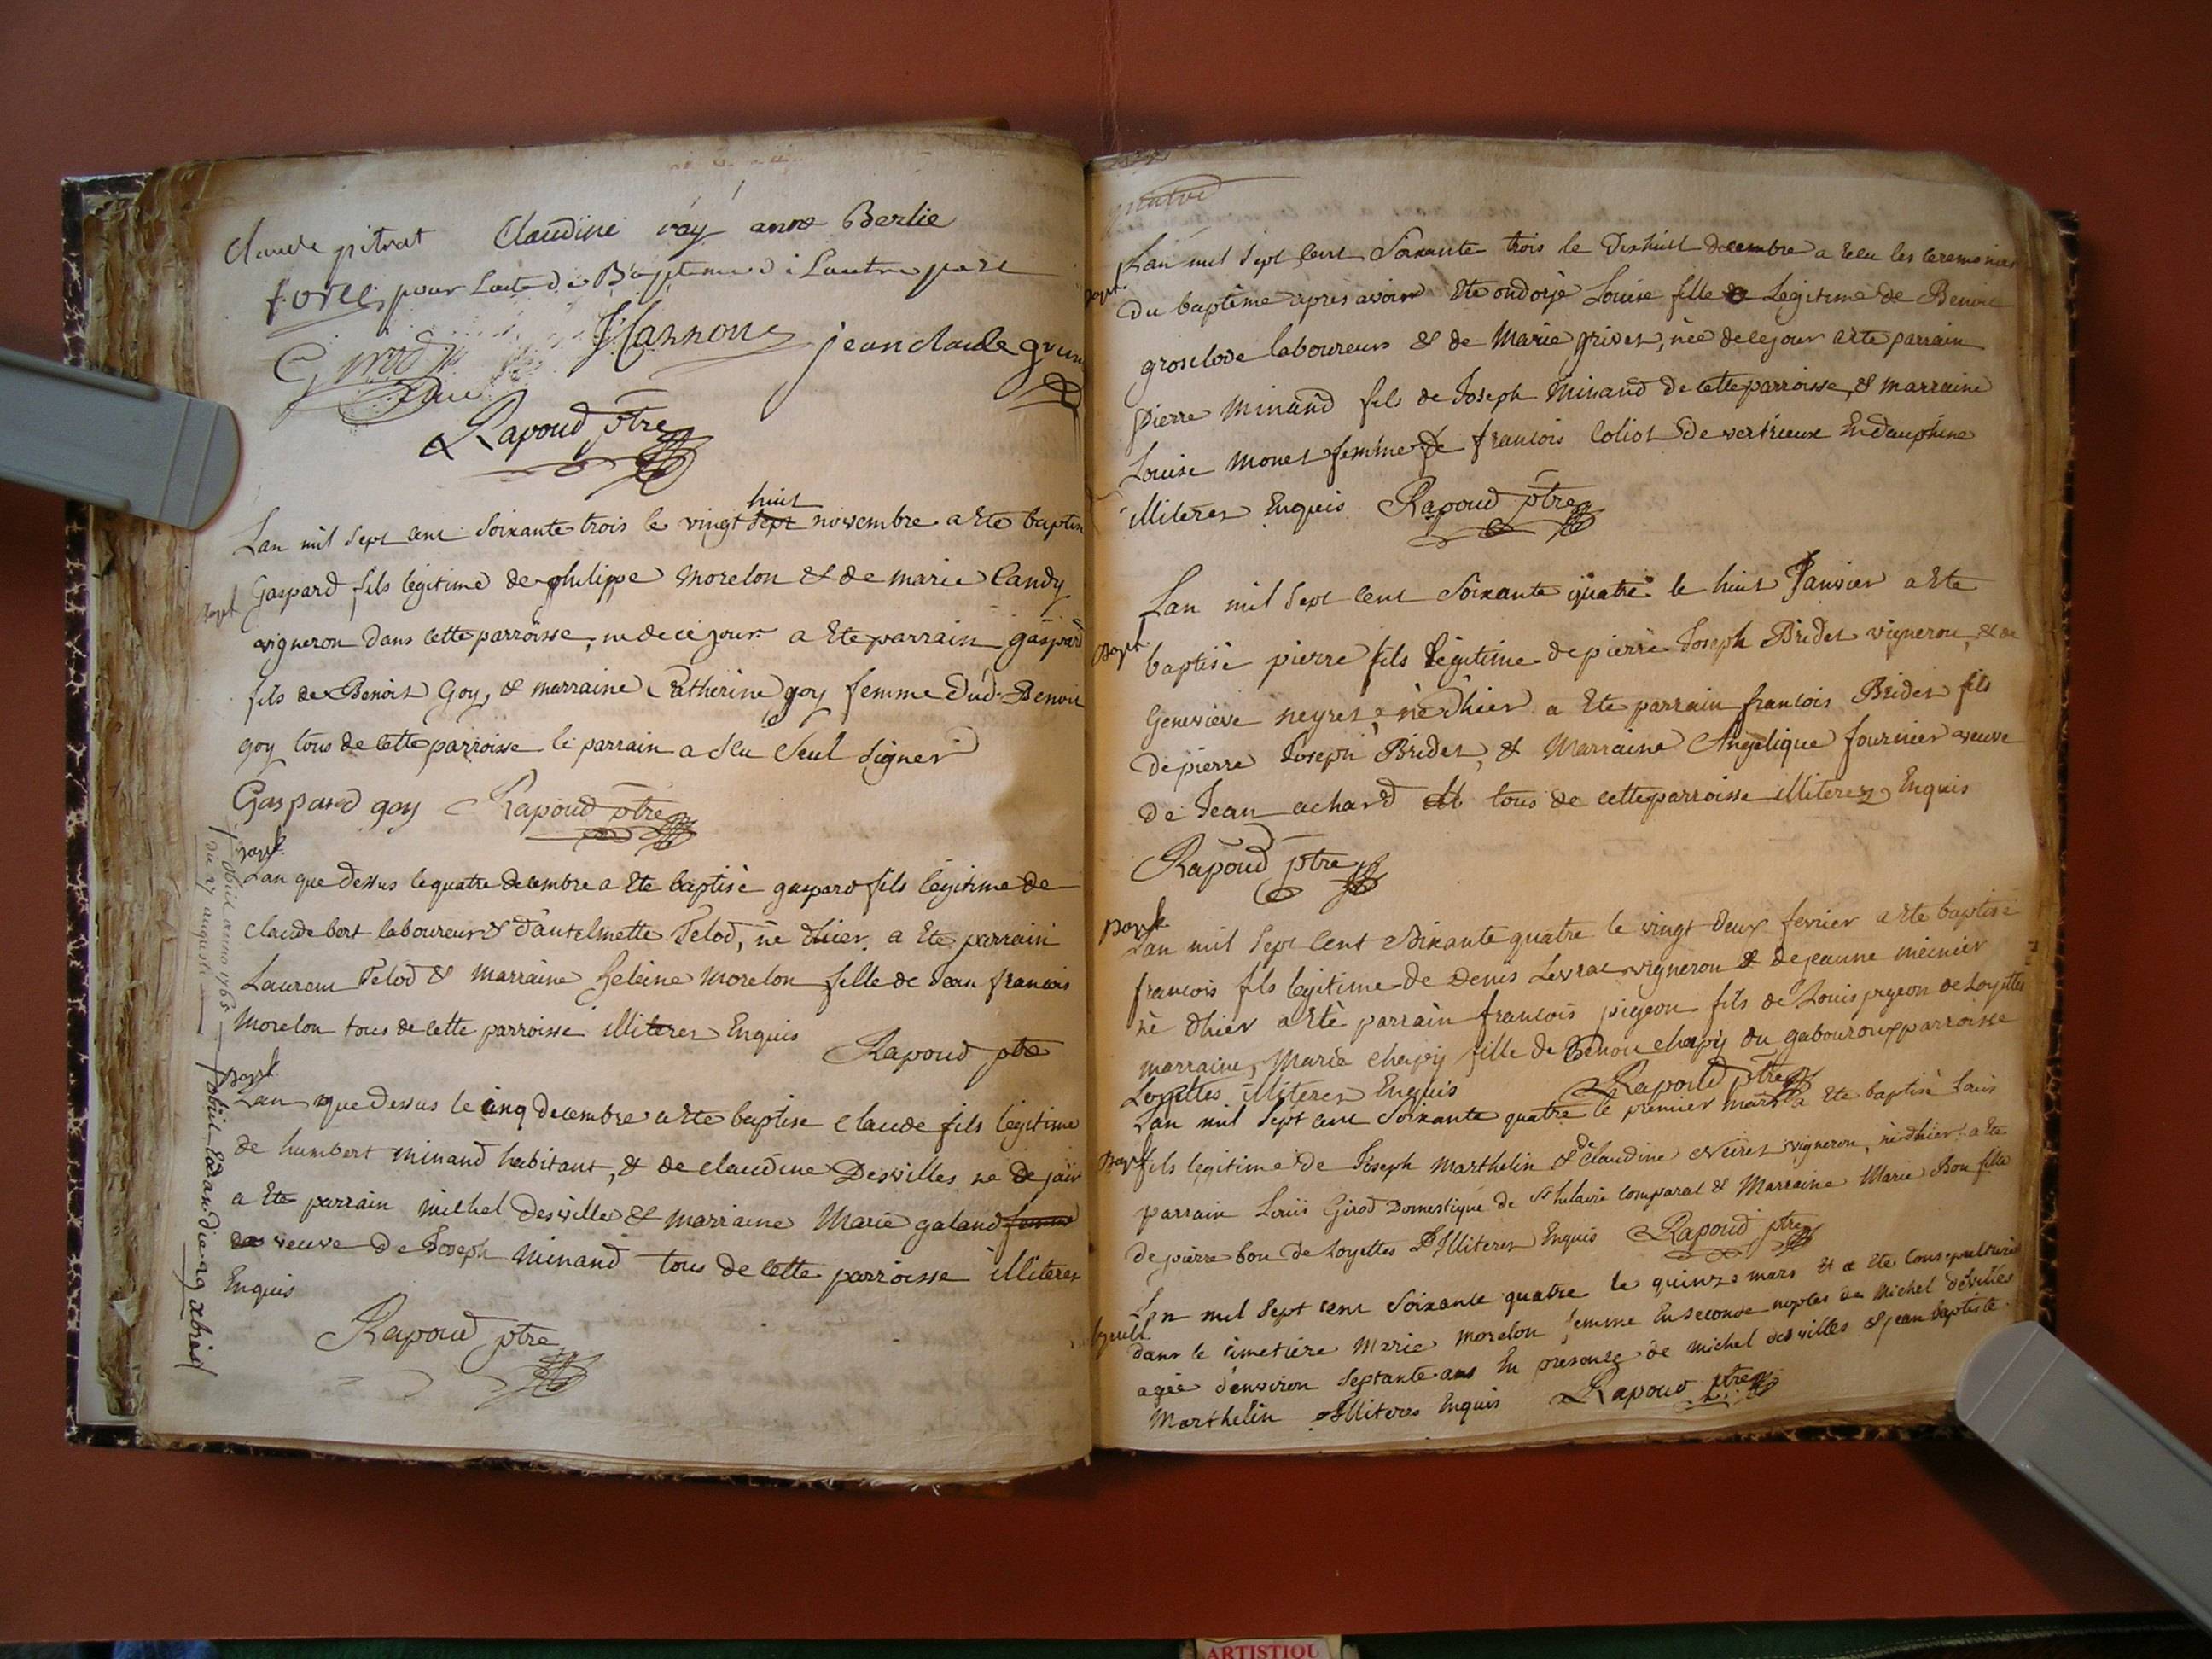 Claude pitrat Claudine ray anne Berlie
pour Lacte de Bapteme de Lautre part
Girod JCannone jean claude
Rapoud ptre
huit
Lan mil Sept cent Soixante trois le vingt sept novembre a Ete baptise
Bapt
Gaspard fils légitime de philippe morelon & de marie Candy
vigneron dans cette parroisse, ne de ce jour a Ete parrain gaspard
fils de Benoit Goy, & marraine Catherine goy femme dud Benoit
goy tous de cette parroisse le parrain a sçu Seul Signer
Gaspard goy Rapoud ptre
Bapt
Lan que dessus le quatre decembre a Ete baptisé gaspard fils légitime de
Claude bert laboureur & d'antelmette Telod, né dhier. a Ete parrain
Laurent Telod & marraine heleine morelon fille de Jean francois
Morelon tous de cette parroisse illiteres Enquis
Rapoud ptre
Bapt
Lan que Dessus le cinq decembre a Ete baptise Claude fils légitime
de humbert minand habitant, & de claudine Desvilles ne de jour
a Ete parrain michel desville & marraine Marie galand femme
veuve De Joseph Minand tous de cette parroisse illiteres
Enquis
Rapoud ptre
obiit anno 1765
die 27 augusti
obiit Eodem die 29 abris
Lan mil Sept Cent Soixante trois le Dixhuit decembre a recu les ceremonies
Bapt
Du baptême apres avoir Ete ondoyé Louise fille Légitime de Benoit
grosclode laboureur & de Marie grivet, née de ce jour a Ete parrain
pierre Minand fils de Joseph Minand de cette parroisse, & marraine
Louise Monet femme de francois Coliot de vertrieux En dauphine
illiteres Enquis Rapoud ptre
Lan mil Sept cent Soixante quatre le huit Janvier a Ete
Bapt
baptisé pierre fils légitime de pierre Joseph Bridet vigneron, & de
Genevieve neyret, né dhier a Ete parrain francois Bridet fils
De pierre Joseph Bridet, & Marraine Angelique fournier veuve
de Jean achard tous de cette parroisse illiteres Enquis
Rapoud ptre
Bapt
Lan mil Sept Cent Soixante quatre le vingt deux fevrier a Ete baptisé
francois fils légitime de Denis Levrat vigneron & de jeanne meinier
né dhier a Eté parrain francois pigeon fils de Louis pigeon de Loyettes
marraine, Marie chapy fille de Benoit chapy du gabouroux parroisse
Loyettes illiteres Enquis Rapoud ptre
Lan mil Sept cent Soixante quatre le premier mars a Ete baptisé Louis
Bapt
fils légitime de Joseph Marthelin & de Claudine Neiret vigneron, né dhier. a Ete
parrain Louis Girod Domestique de St hilaire comparat & Marraine Marie Bon fille
de pierre bon de Loyettes Illiteres Enquis Rapoud ptre
Lan mil Sept cent Soixante quatre le quinze mars Et a Ete
Sepult
dans le cimetiere Marie morelon femme En seconde noptes de Michel desvilles
agée denviron Septante ans En presence de Michel desvilles & jean baptiste
Marthelin Illiteres Enquis Rapoud ptre
ARTISTIQU